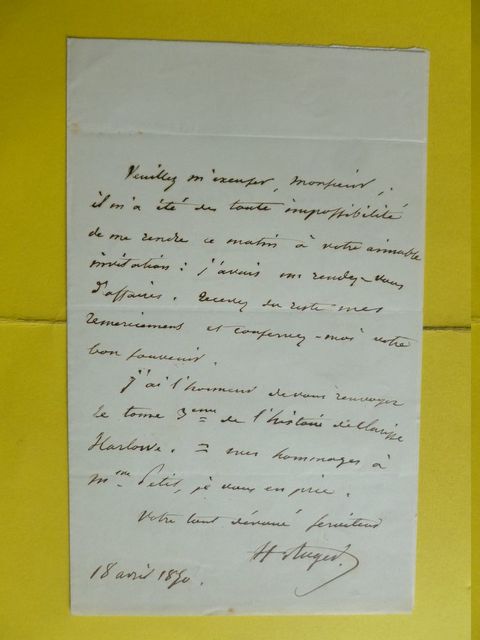 Veuillez m'excuser, Monsieur,
il m'a été de toute impossibilité
de me rendre ce matin à votre aimable
invitation : j'avais un rendez-vous
d'affaires. Recevez du reste mes
remerciemens et conservez-moi votre
bon souvenir.
J'ai l'honneur de vous renvoyer
le tome 3eme de l'histoire de Clarisse
Harlowe. = mes hommages à
Mme Petit, je vous en prie.
Votre tout dévoué serviteur
H Auger.
18 avril 1850.